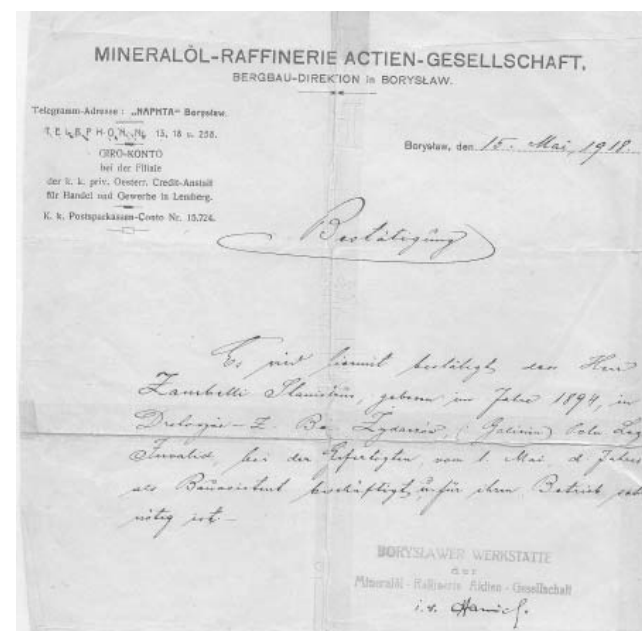 MINERALÖL-RAFFINERIE ACTIEN-GESELLSCHAFT,
BERGBAU-DIREKTION in BORYSŁAW.
Telegramm-Adresse: „NAPHTA“ Borysław.
TELEPHON Nr. 15, 18 u. 258.
GIRO-KONTO
bei der Filiale
der k. k. priv. Oesterr. Credit-Anstalt
für Handel und Gewerbe in Lemberg.
K. k. Postsparkassen-Conto Nr. 15.724.
Borysław, den 15. Mai, 1918.
Bestätigung
Es wird hiemit bestätigt, dass Herr
Zambelli Stanislaus, geboren im Jahre 1894, in
(Galizien) Poln. Leg.
Invalid, bei der Gefertigten, vom 1. Mai, d. Jahres
als Bauassistent beschäftigt, u. für ihren Betrieb
nötig ist.—
BORYSŁAWER WERKSTÄTTE
der
Mineralöl-Raffinerie Aktien-Gesellschaft
i.v.